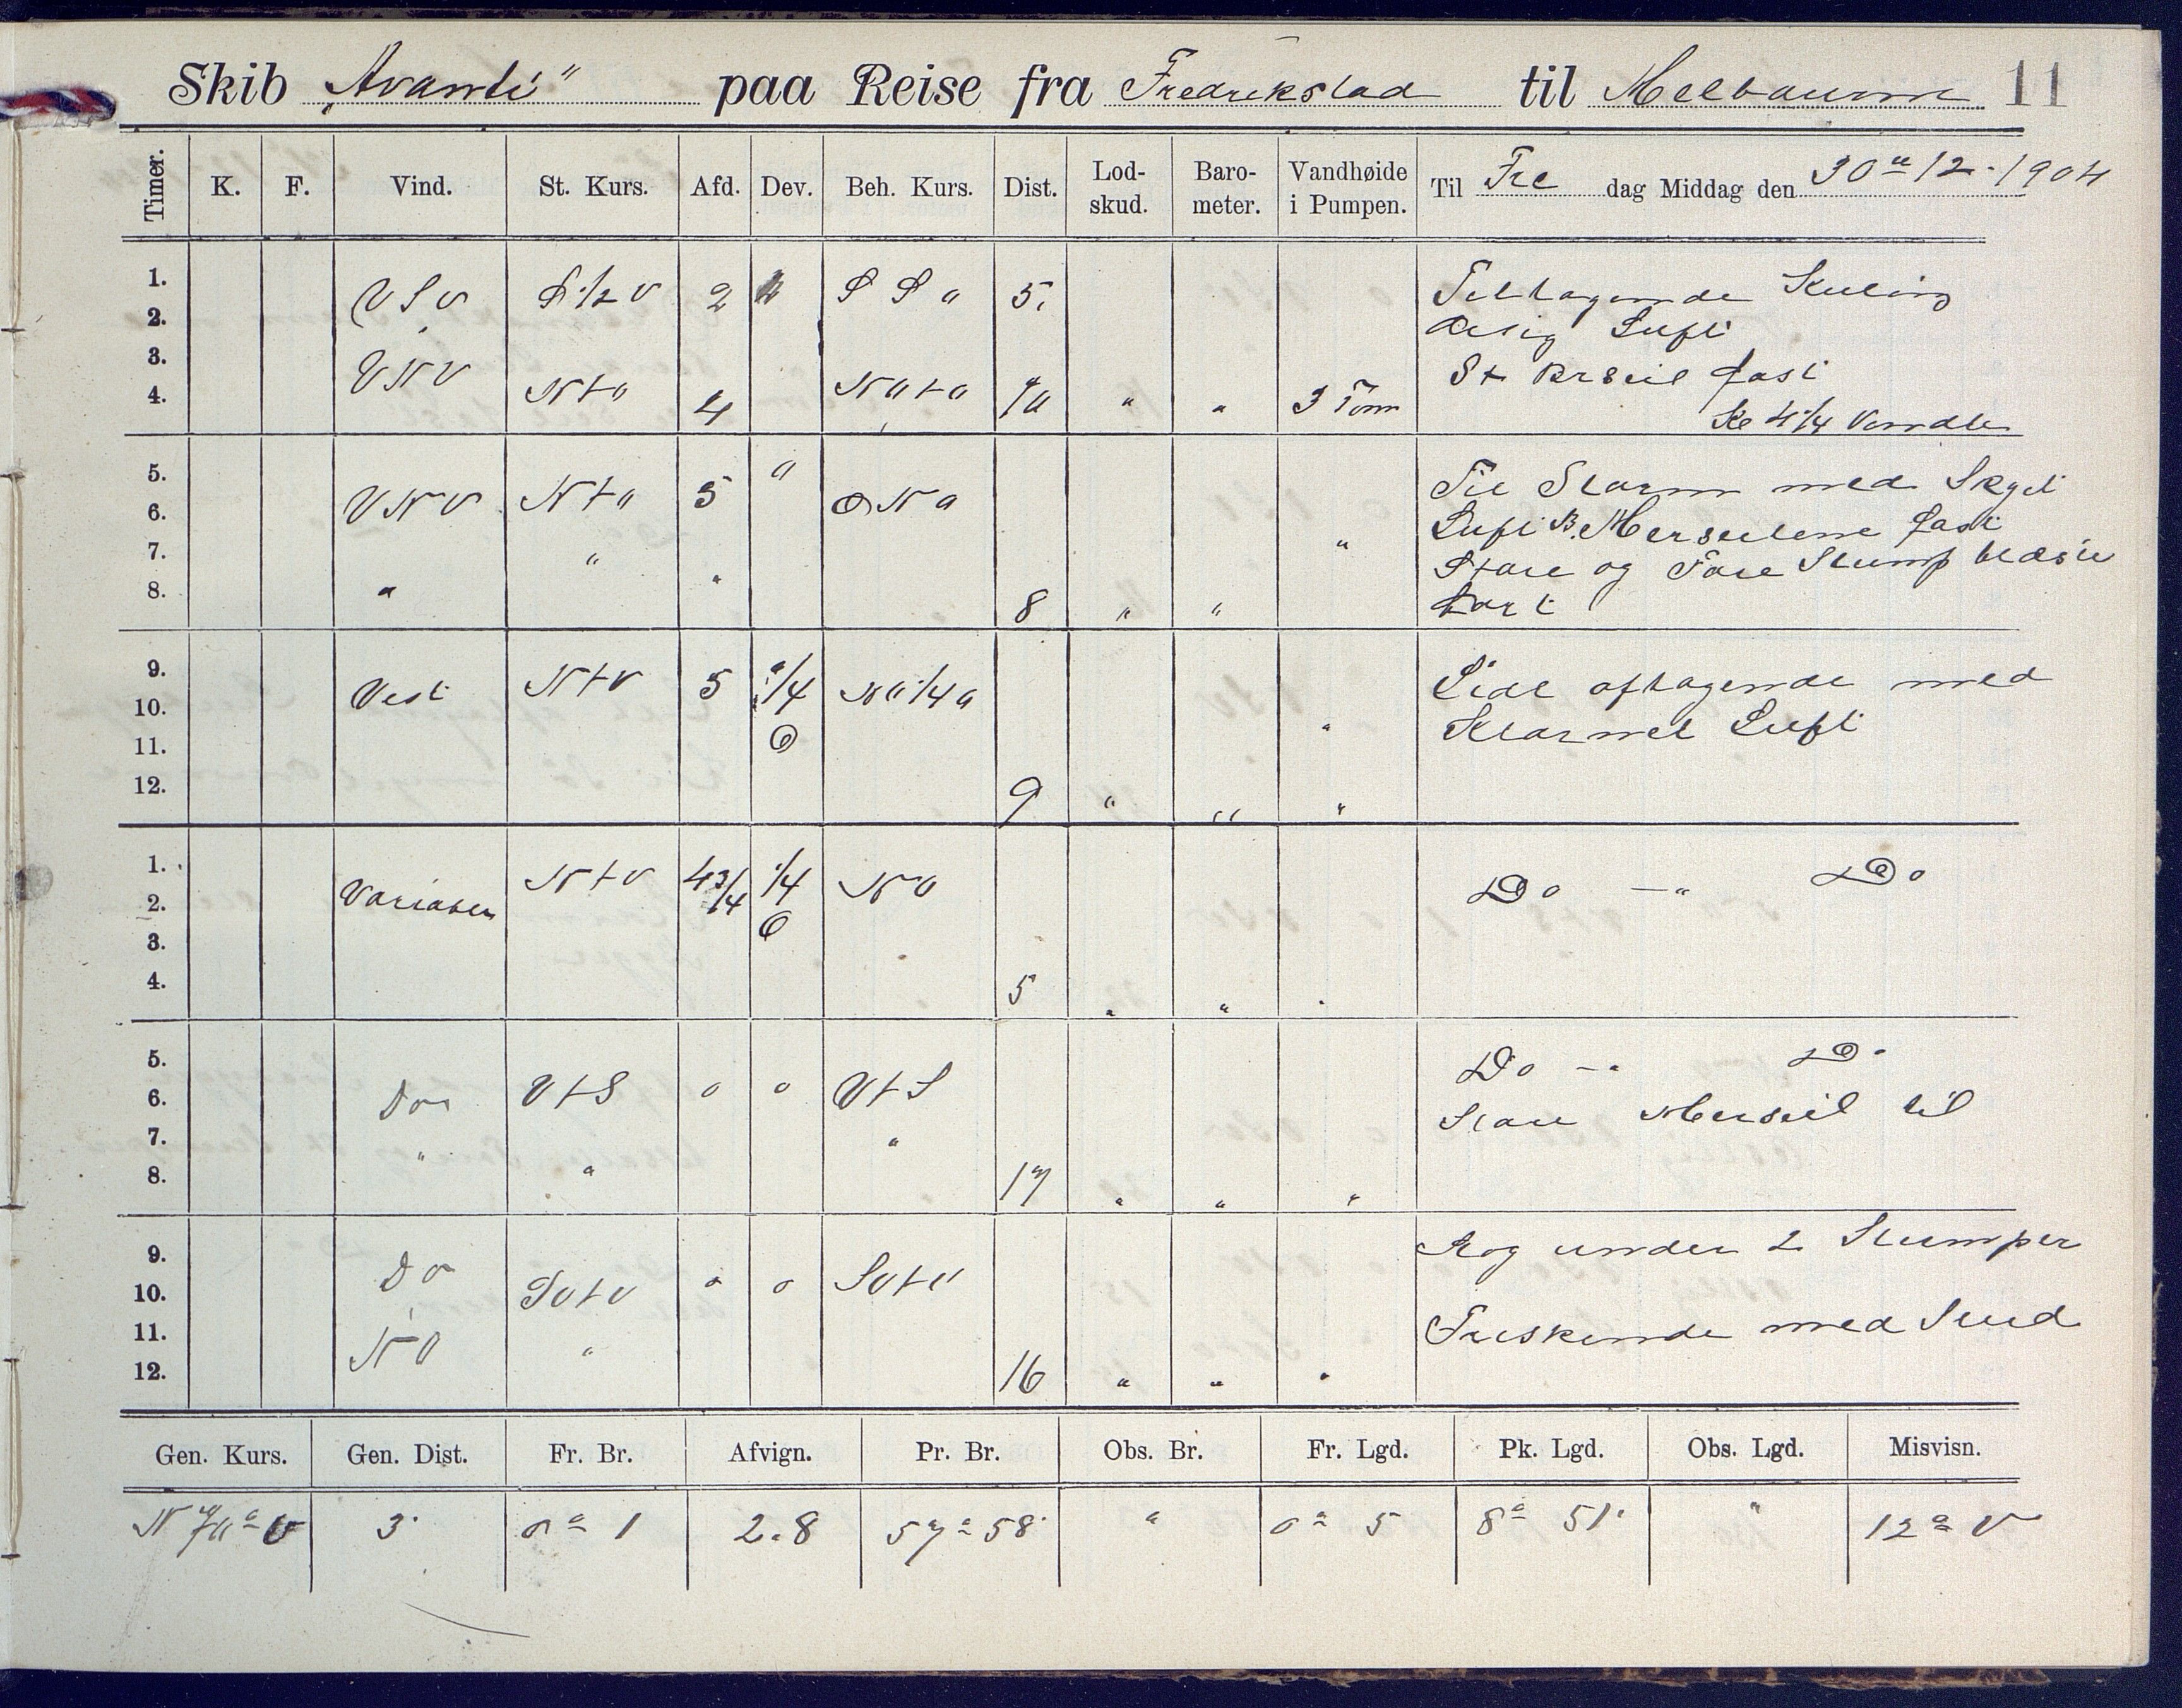 Skib „Avanti" paa Reise fra Fredrikstad til Melbaurne 11
Timer. K. F. Vind. St. Kurs. Afd. Dev. Beh. Kurs. Dist. Lod-skud. Baro-meter. Vandhøide i Pumpen. Til Fre dag Middag den 30 12. 1904
1. VSV S 1/2 V 2 5. Tiltagende Kuling
2. Luft
3. VNV fast
4. N t 4 " " 3 Tom Kl 4 1/4 Vendte
5. " Til Storm med Skyet
6. VNV N t 5 Luft B. Merseilene fast
7. " " Store og Fore Stump
8. " " 8 " "
9. Vest N t V 5 1/4 Lidt aftagende med
10. O " Klarnet Luft
11.
12. 9 " " "
1. N t V 4 3/4 1/4 NO Do — " Do
2. Variaben O
3.
4. 5 " " "
5. Do — " Do
6. Do V t S o o V t S Store Merseil til
7. " "
8. " 17 " " "
9. Do under 2 Stumper
10. o o
11. NO " Friskende med
12. 16 " " "
Gen. Kurs. Gen. Dist. Fr. Br. Afvign. Pr. Br. Obs. Br. Fr. Lgd. Pk. Lgd. Obs. Lgd. Misvisn.
3' 0° 1 2.8 57° 58' " 0° 5 8° 51' " 12° V